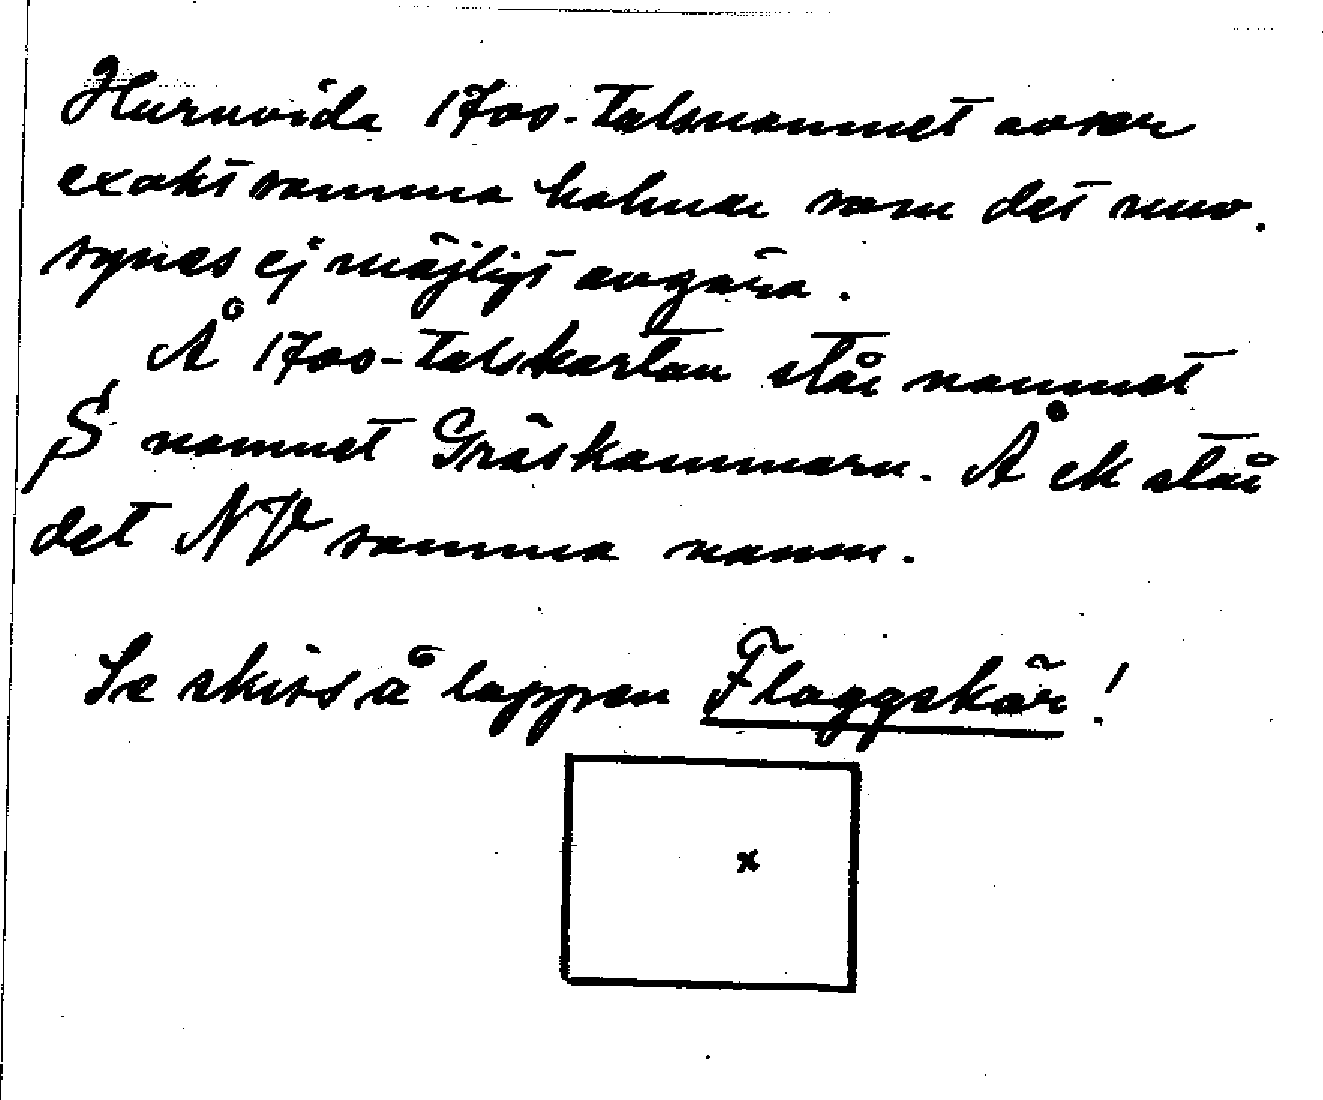 Huruvida 1700-talsnamnet avser
exakt samma holme som det nuv.
synes ej möjligt avgöra.
Å 1700-talskartan står namnet
S namnet Gräskammarn. Å ek står
det NV samma namn.
Se skiss å lappen Flaggskär!
x